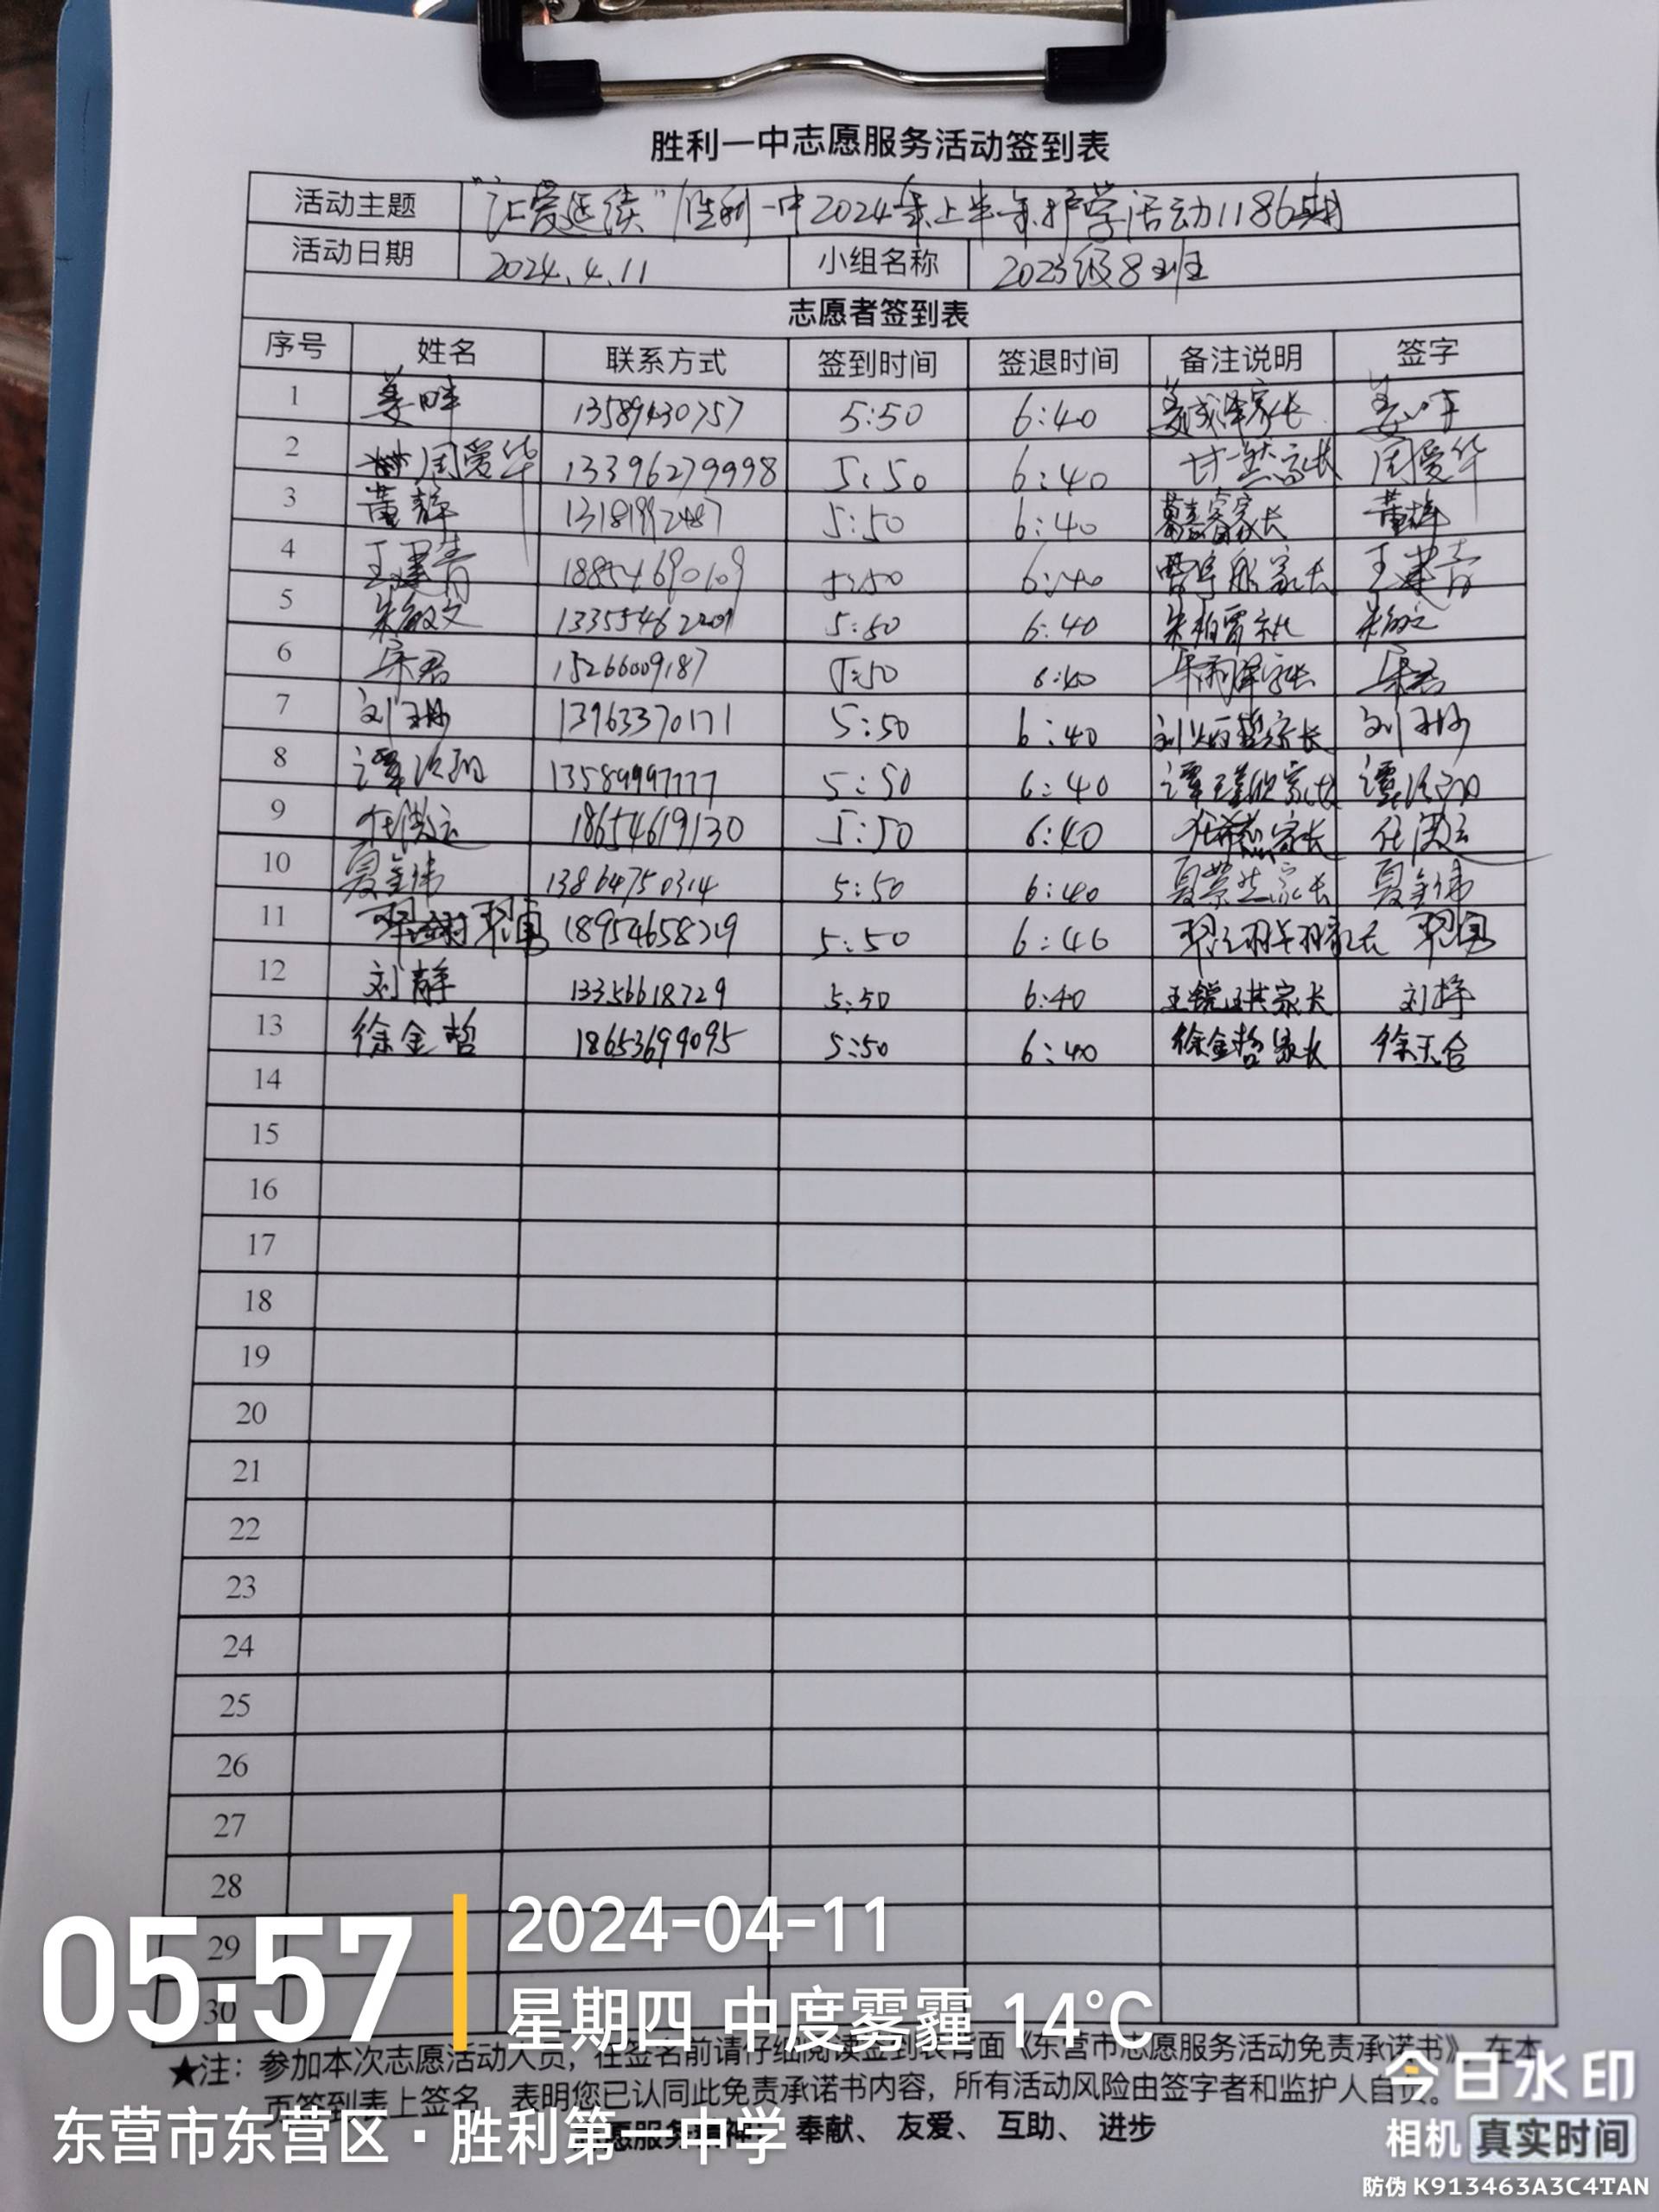 胜利一中志愿服务活动签到表
活动主题 "汇爱延续"胜利一中2024年上半年护学活动1186期
活动日期 2024.4.11 小组名称 2023级8班
志愿者签到表
序号 姓名 联系方式 签到时间 签退时间 备注说明 签字
1 姜 13589430757 5:50 6:40 家长 姜
2 周爱华 13396279998 5:50 6:40 家长 周爱华
3 董静 13181992487 5:50 6:40 家长 董静
4 王建青 18854690109 5:50 6:40 家长 王建青
5 朱敏文 5:50 6:40 朱敏文
6 宋君 15266009187 5:50 6:40 家长 宋君
7 刘 13963370171 5:50 6:40 家长 刘
8 谭 13589997777 5:50 6:40 谭 家长 谭
9 任 18654619130 5:50 6:40 任 家长 任
10 夏金伟 13864750314 5:50 6:40 夏 家长 夏金伟
11 18954658729 5:50 6:40 家长
12 刘静 13356618729 5:50 6:40 王 家长 刘静
13 徐金哲 18653699095 5:50 6:40 徐金哲家长 徐天合
14
15
16
17
18
19
20
21
22
23
24
25
26
27
28
29
30
05:57
2024-04-11
星期四 中度雾霾 14°C
★注：参加本次志愿活动人员，在签名前请仔细阅读签到表背面《东营市志愿服务活动免责承诺书》在本
页签到表上签名，表明您已认同此免责承诺书内容，所有活动风险由签字者和监护人自负。
志愿服务精神： 奉献、 友爱、 互助、 进步
东营市东营区·胜利第一中学
今日水印
相机 真实时间
防伪 K913463A3C4TAN